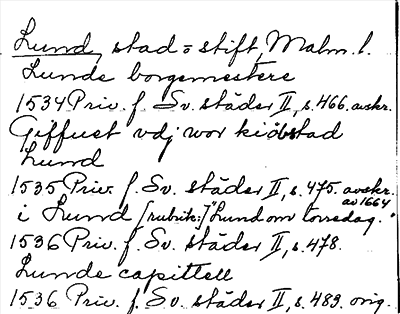 Lund, stad = stift, Malm. l.
Lunde borgemestere
1534 Priv. f. Sv. städer II, s. 466. avskr.
Giffuet vdj wor kiöbstad
Lund
1535 Priv. f. Sv. städer II, s. 475. avskr.
av 1664
i Lund [rubrik:] "Lund om torsedag."
1536 Priv. f. Sv. städer II, s. 478.
Lunde capittell
1536 Priv. f. Sv. städer II, s. 483. orig.